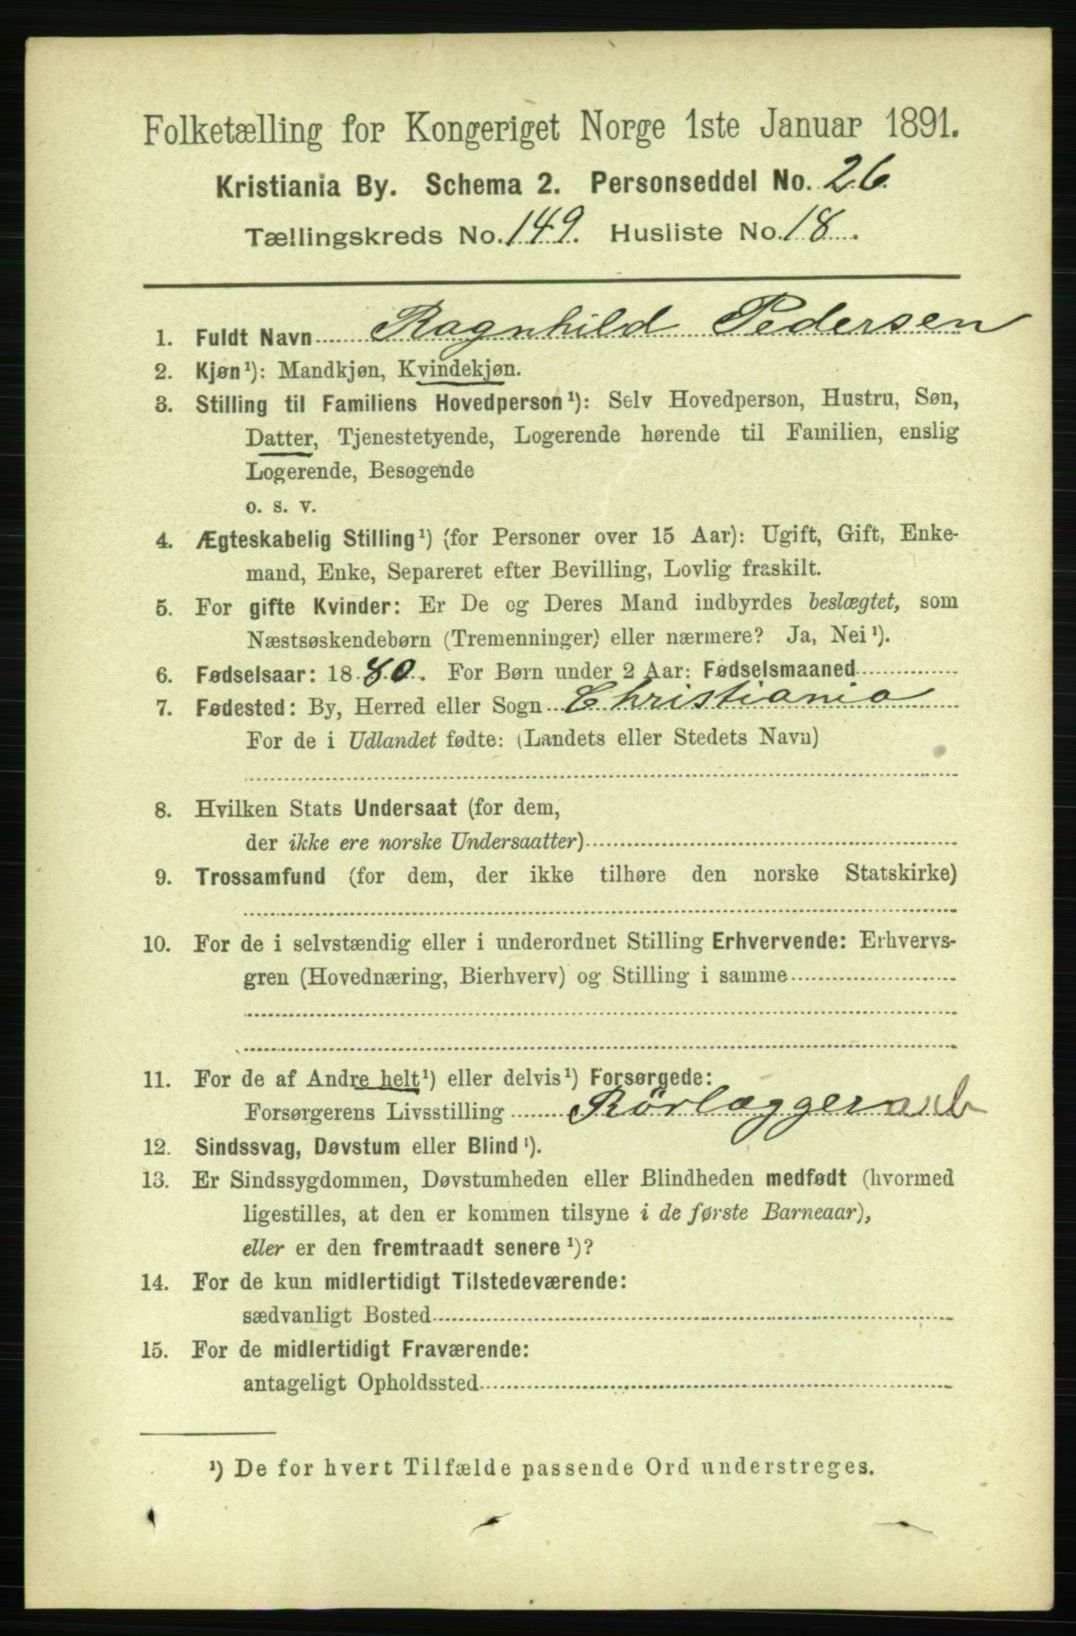 Folketælling for Kongeriget Norge 1ste Januar 1891.
Kristiania By. Schema 2. Personseddel No. 26.
Tællingskreds No. 149. Husliste No. 18.
1. Fuldt Navn Ragnhild Pedersen
2. Kjøn¹): Mandkjøn, Kvindekjøn.
3. Stilling til Familiens Hovedperson¹): Selv Hovedperson, Hustru, Søn,
Datter, Tjenestetyende, Logerende hørende til Familien, enslig
Logerende, Besøgende
o. s. v.
4. Ægteskabelig Stilling¹) (for Personer over 15 Aar): Ugift, Gift, Enke-
mand, Enke, Separeret efter Bevilling, Lovlig fraskilt.
5. For gifte Kvinder: Er De og Deres Mand indbyrdes beslægtet, som
Næstsøskendebørn (Tremenninger) eller nærmere? Ja, Nei¹).
6. Fødselsaar: 1880. For Børn under 2 Aar: Fødselsmaaned
7. Fødested: By, Herred eller Sogn Christiania
For de i Udlandet fødte: (Landets eller Stedets Navn)
8. Hvilken Stats Undersaat (for dem,
der ikke ere norske Undersaatter)
9. Trossamfund (for dem, der ikke tilhøre den norske Statskirke)
10. For de i selvstændig eller i underordnet Stilling Erhvervende: Erhvervs-
gren (Hovednæring, Bierhverv) og Stilling i samme
11. For de af Andre helt¹) eller delvis¹) Forsørgede:
Forsørgerens Livsstilling Rörlæggerarb
12. Sindssvag, Døvstum eller Blind¹).
13. Er Sindssygdommen, Døvstumheden eller Blindheden medfødt (hvormed
ligestilles, at den er kommen tilsyne i de første Barneaar),
eller er den fremtraadt senere¹)?
14. For de kun midlertidigt Tilstedeværende:
sædvanligt Bosted
15. For de midlertidigt Fraværende:
antageligt Opholdssted
¹) De for hvert Tilfælde passende Ord understreges.